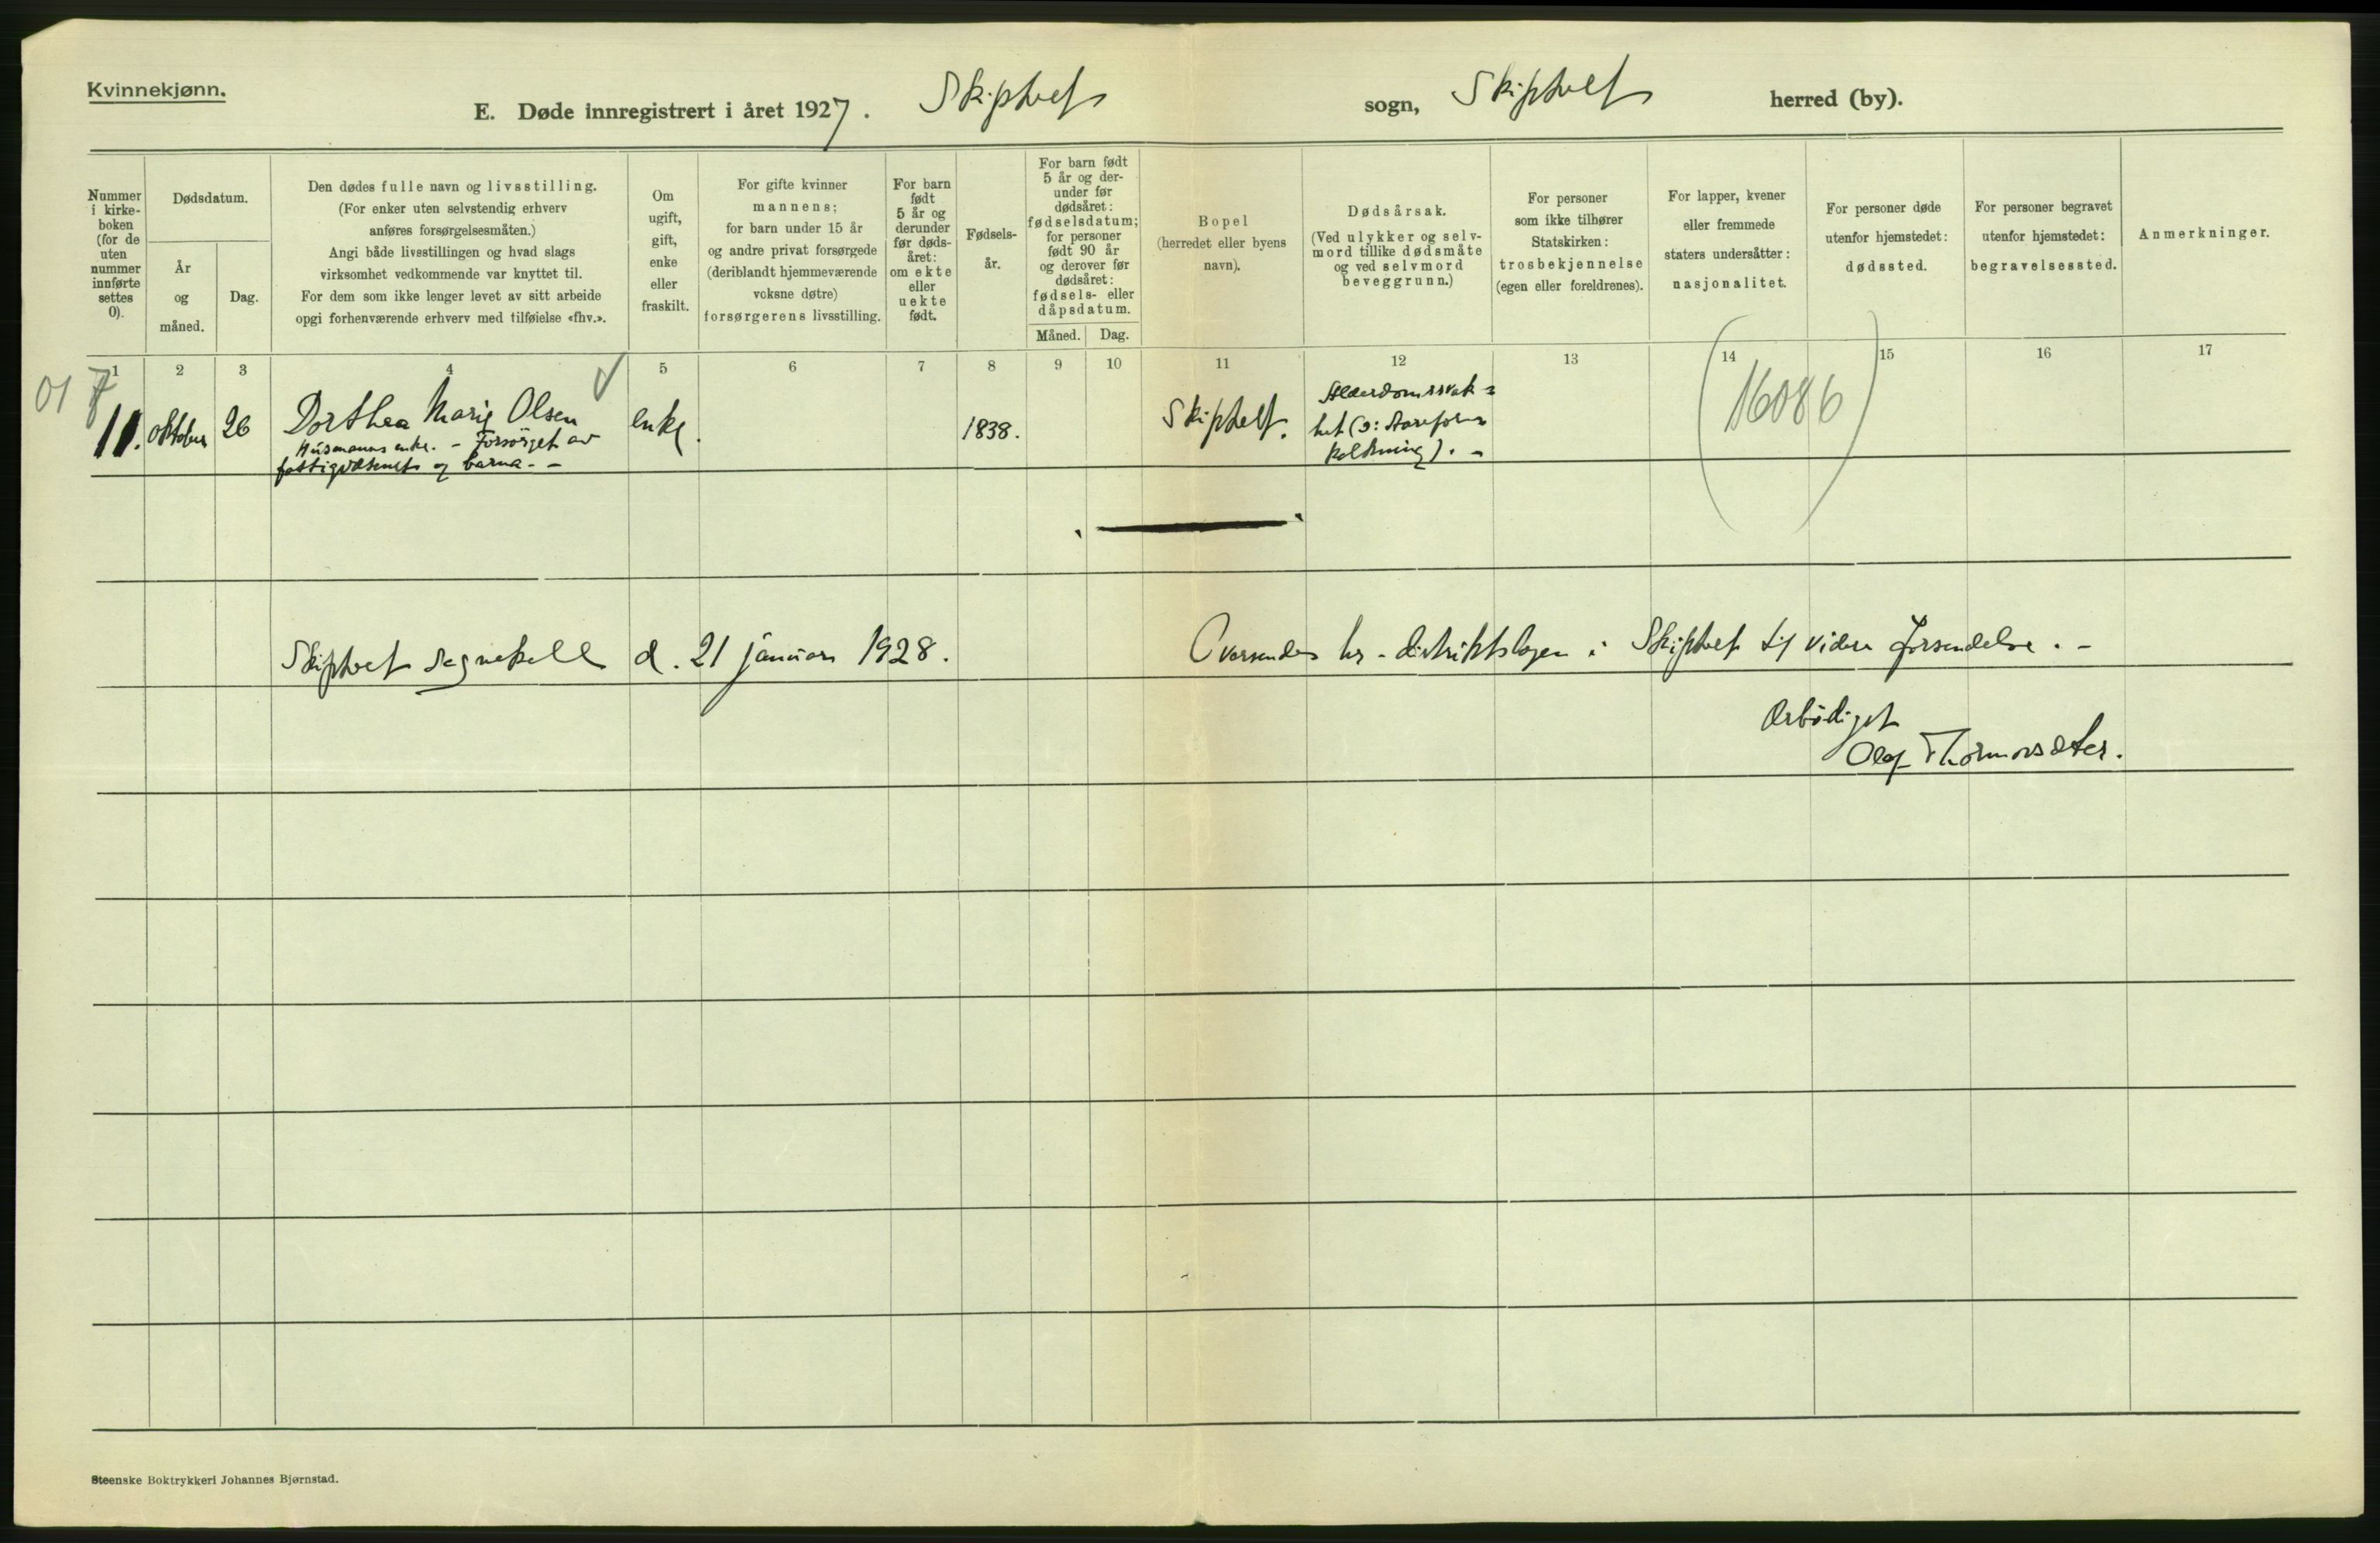 Kvinnekjønn.
E. Døde innregistrert i året 1927. Skiptvet sogn, Skiptvet herred (by).
Nummer i kirke- boken (for de uten nummer innførte settes 0).
Dødsdatum.
År og måned.
Dag.
Den dødes fulle navn og livsstilling.
(For enker uten selvstendig erhverv
anføres forsørgelsesmåten.)
Angi både livsstillingen og hvad slags
virksomhet vedkommende var knyttet til.
For dem som ikke lenger levet av sitt arbeide
opgi forhenværende erhverv med tilføielse «fhv.».
Om
ugift,
gift,
enke
eller
fraskilt.
For gifte kvinner
mannens;
for barn under 15 år
og andre privat forsørgede
(deriblandt hjemmeværende
voksne døtre)
forsørgerens livsstilling.
For barn
født
5 år og
derunder
før døds-
året:
om ekte
eller
uekte
født.
Fødsels-
år.
For barn født
5 år og der-
under før
dødsåret:
fødselsdatum;
for personer
født 90 år
og derover før
dødsåret:
fødsels- eller
dåpsdatum.
Måned. Dag.
Bopel
(herredet eller byens
navn).
Dødsårsak.
(Ved ulykker og selv-
mord tillike dødsmåte
og ved selvmord
beveggrunn.)
For personer
som ikke tilhører
Statskirken:
trosbekjennelse
(egen eller foreldrenes).
For lapper, kvener
eller fremmede
staters undersåtter:
nasjonalitet.
For personer døde
utenfor hjemstedet:
dødssted.
For personer begravet
utenfor hjemstedet:
begravelsessted.
Anmerkninger.
1 2 3 4 5 6 7 8 9 10 11 12 13 14 15 16 17
01 7
11. Oktober 26 Dorthea Marie Olsen enke. 1838. Skiptvet.
Husmanns enke. - Forsørget av
fattigvæsenet og barna. -
Alderdomssvak=
het (ɔ: Aareforn
kalkning). -
(16086)
Skiptvet sognekall d. 21 januar 1928.
Oversendes hr. distriktslægen i Skiptvet til videre forsendelse. -
Ærbödigst
Olaf Thormodsæter.
Steenske Boktrykkeri Johannes Bjørnstad.